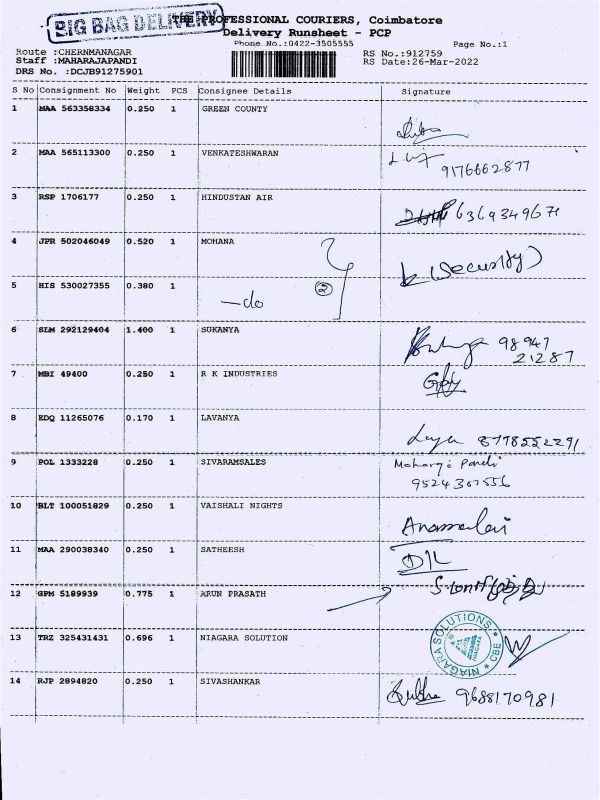 BIG BAG DELIVERY
THE PROFESSIONAL COURIERS, Coimbatore
Delivery Runsheet - PCP
Phone No.:0422-3505555 Page No.:1
Route :CHERNMANAGAR RS No.:912759
Staff :MAHARAJAPANDI RS Date:26-Mar-2022
DRS No. :DCJB91275901
S No Consignment No Weight PCS Consignee Details Signature
1 MAA 563358334 0.250 1 GREEN COUNTY
2 MAA 565113300 0.250 1 VENKATESHWARAN
9176662877
3 RSP 1706177 0.250 1 HINDUSTAN AIR
6369349671
4 JPR 502046049 0.520 1 MOHANA
(Security)
5 HIS 530027355 0.380 1 —do ②
6 SLM 292129404 1.400 1 SUKANYA
98947
21287
7 MBI 49400 0.250 1 R K INDUSTRIES
8 EDQ 11265076 0.170 1 LAVANYA
8778552291
9 POL 1333228 0.250 1 SIVARAMSALES
Pandi
9524301556
10 BLT 100051829 0.250 1 VAISHALI NIGHTS
Annamalai
11 MAA 290038340 0.250 1 SATHEESH
12 GPM 5189939 0.775 1 ARUN PRASATH
13 TRZ 325431431 0.696 1 NIAGARA SOLUTION
NIAGARA SOLUTIONS CBE
14 RJP 2894820 0.250 1 SIVASHANKAR
9688170981